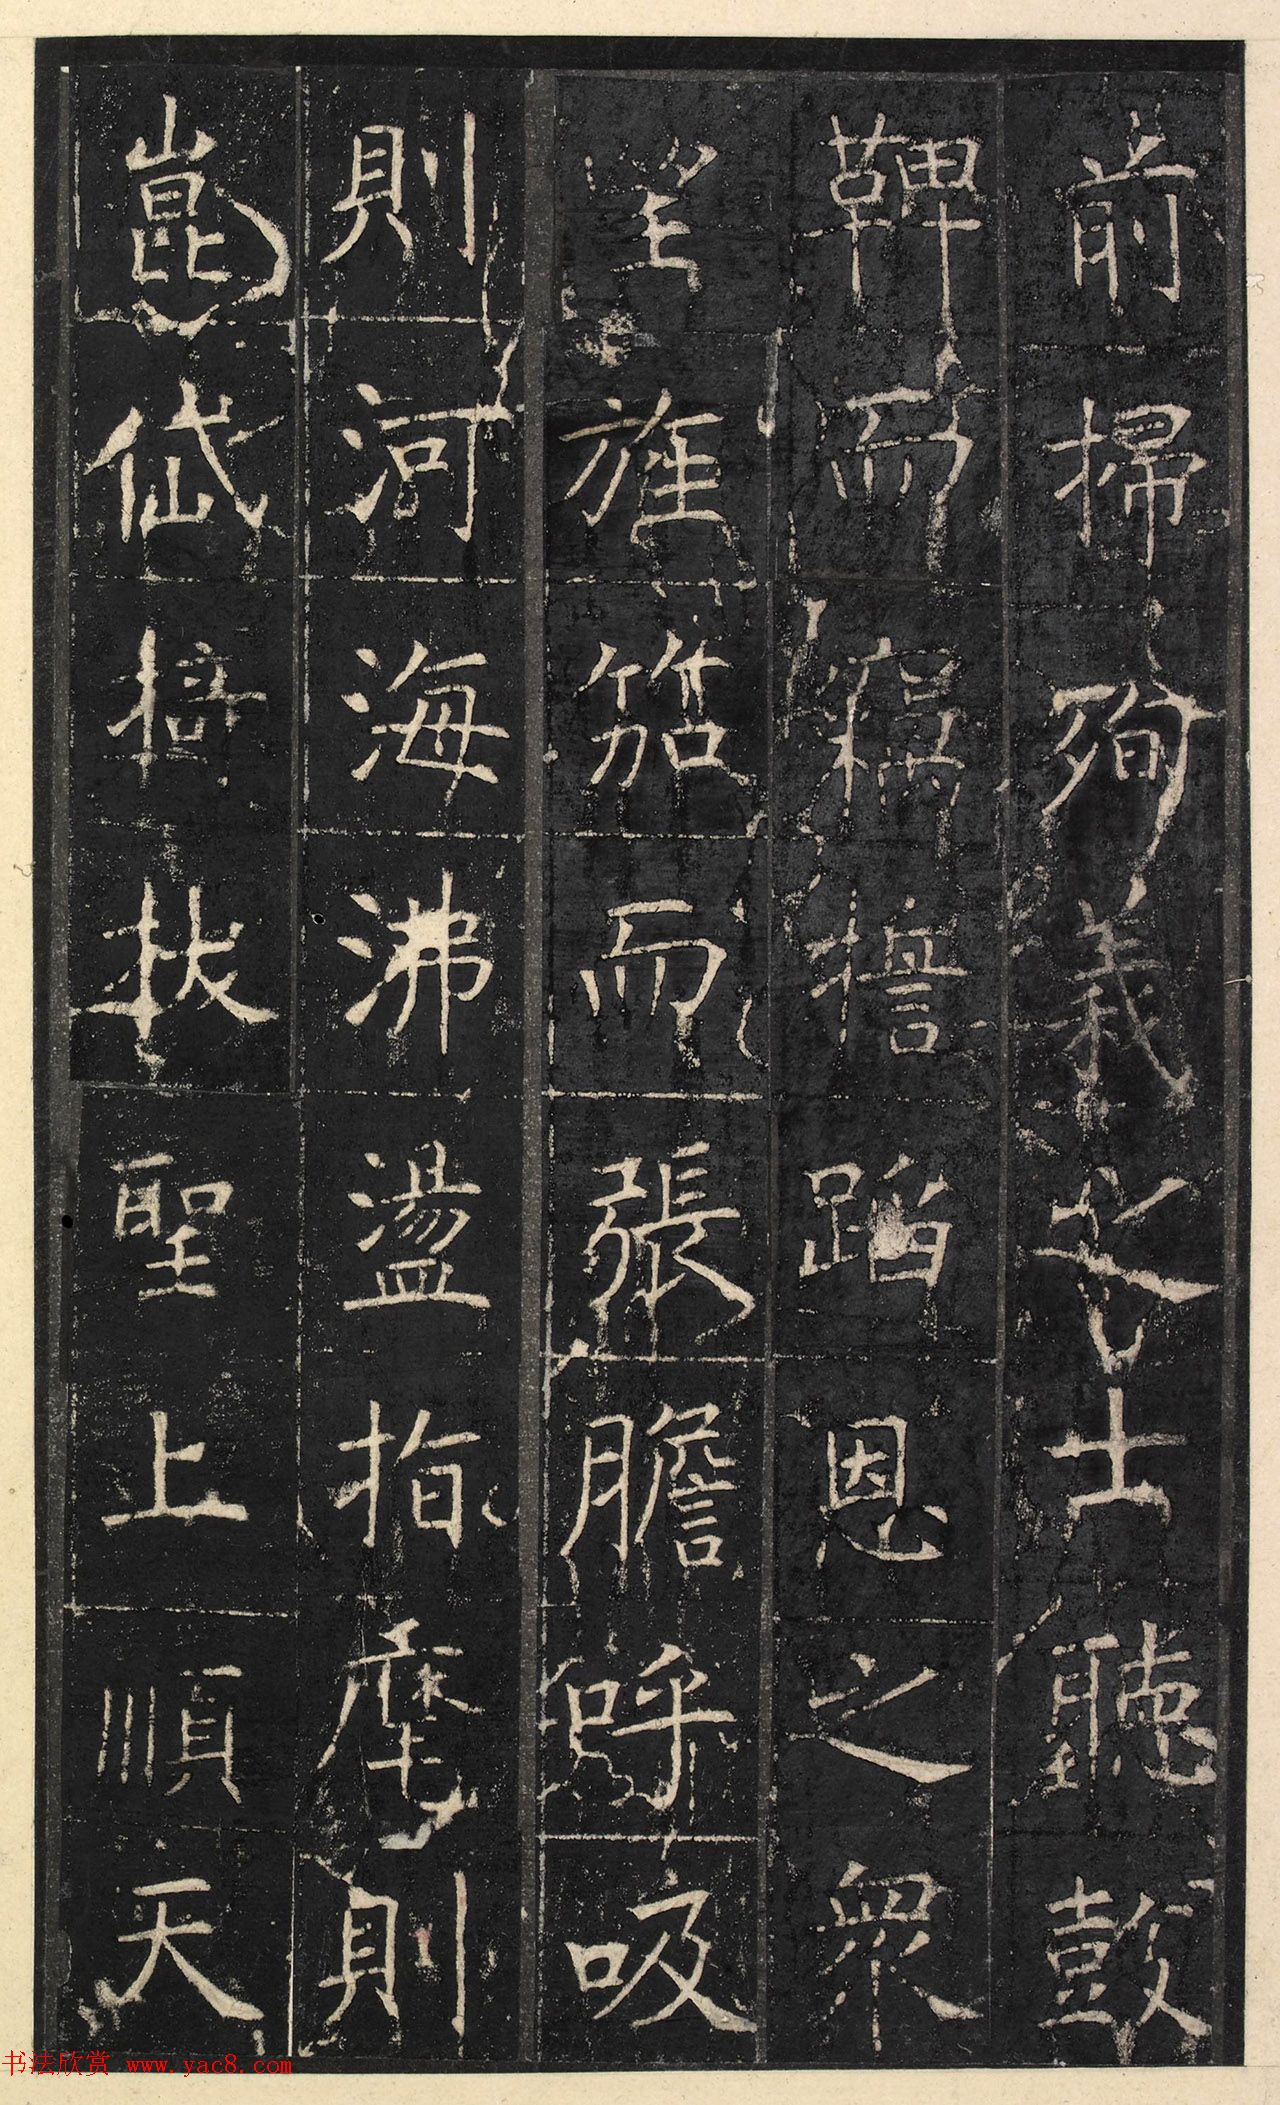 前掃殉義之士聽鼓
鞞而竊擔蹈恩之衆
望旌笳而張膽呼吸
則河海沸盪指麾則
崑岱𢭏拔聖上順天
书法欣赏 www.yac8.com